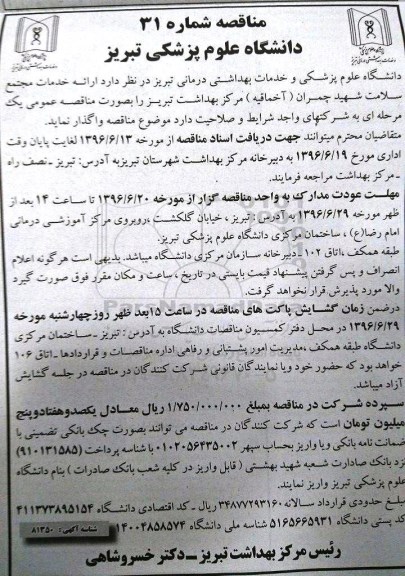 مناقصه شماره ۳۱
دانشگاه علوم پزشکی تبریز
دانشگاه علوم پزشکی و خدمات بهداشتی درمانی تبریز در نظر دارد ارائه خدمات مجتمع
سلامت شهید چمران ( آخماقیه ) مرکز بهداشت تبریز را بصورت مناقصه عمومی یک
مرحله ای به شرکتهای واجد شرایط و صلاحیت دارد موضوع مناقصه واگذار نماید.
متقاضیان محترم میتوانند جهت دریافت اسناد مناقصه از مورخه ۱۳۹۶/۶/۱۳ لغایت پایان وقت
اداری مورخ ۱۳۹۶/۶/۱۹ به دبیرخانه مرکز بهداشت شهرستان تبریزبه آدرس: تبریز ـ نصف راه
ـ مرکز بهداشت مراجعه فرمایند.
مهلت عودت مدارک به واحد مناقصه گزار از مورخه ۱۳۹۶/۶/۲۰ تا ساعت ۱۴ بعد از
ظهر مورخه ۱۳۹۶/۶/۲۹ به آدرس : تبریز ، خیابان گلگشت ،روبروی مرکز آموزشی درمانی
امام رضا(ع) ، ساختمان مرکزی دانشگاه علوم پزشکی تبریز.
طبقه همکف ،اتاق ۱۰۲ ـ دبیرخانه سازمان مرکزی دانشگاه میباشد. بدیهی است هرگونه اعلام
انصراف و پس گرفتن پیشنهاد قیمت بایستی در تاریخ ، ساعت و مکان مقرر فوق صورت گیرد
والا مورد پذیرش قرار نخواهد گرفت.
درضمن زمان گشایش پاکت های مناقصه در ساعت ۱۵بعد ظهر روزچهارشنبه مورخه
۱۳۹۶/۶/۲۹ در محل دفتر کمسیون مناقصات دانشگاه به آدرس : تبریز ـ ساختمان مرکزی
دانشگاه طبقه همکف ،مدیریت امور پشتیبانی و رفاهی اداره مناقصات و قراردادها ـ اتاق ۱۰۶
خواهد بود که حضور خود ویا نمایندگان قانونی شرکت کنندگان در مناقصه در جلسه گشایش
آزاد میباشد.
سپرده شرکت در مناقصه بمبلغ ۱/۷۵۰/۰۰۰/۰۰۰ ریال معادل یکصدوهفتادوپنج
میلیون تومان است که شرکت کنندگان در مناقصه می توانند بصورت چک بانکی تضمینی یا
ضمانت نامه بانکی ویا واریز بحساب سپهر ۰۱۰۲۰۵۶۴۳۵۰۰۲ با شناسه پرداخت (۹۱۰۱۳۱۵۸۵)
نزد بانک صادارت شعبه شهید بهشتی ( قابل واریز در کلیه شعب بانک صادرات ) بنام دانشگاه
علوم پزشکی تبریز واریز نمایند.
مبلغ حدودی قرارداد سالانه ۳۴۸۷۷۲۹۳۱۶۰ ریال ـ کد اقتصادی دانشگاه ۴۱۱۳۷۳۸۹۵۱۵۴
کد پستی دانشگاه ۵۱۶۵۶۶۵۹۳۱ شناسه ملی دانشگاه ۱۴۰۰۴۸۵۸۵۷۴
شناسه آگهی: ۸۱۳۵۰
رئیس مرکز بهداشت تبریز ـ دکتر خسروشاهی
ParsNamadData